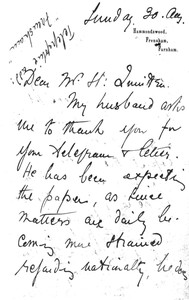 Sunday, 30. Aug.
Hammondswood,
Frensham,
Farnham.
Telegraphic
Dear Mr
My husband asks
me to thank you for
your telegram & letter.
He has been expecting
the paper, as since
matters are daily be-
coming more strained
regarding nationality, he